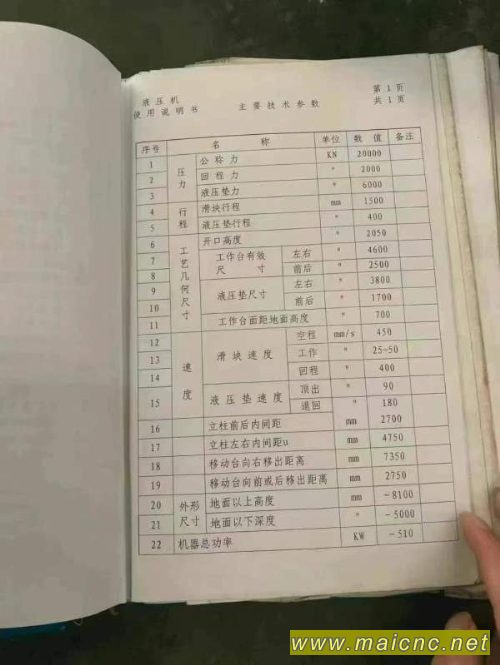 液压机
使用说明书 主要技术参数 第1页
共1页
序号 名称 单位 数值 备注
1 压力 公称力 KN 20000
2 回程力 " 2000
3 液压垫力 " 6000
4 行程 滑块行程 mm 1500
5 液压垫行程 " 400
6 工艺几何尺寸 开口高度 " 2050
7 工作台有效尺寸 左右 " 4600
8 前后 " 2500
9 液压垫尺寸 左右 " 3800
10 前后 " 1700
11 工作台面距地面高度 " 700
12 速度 滑块速度 空程 mm/s 450
13 工作 " 25~50
14 回程 " 400
15 液压垫速度 顶出 " 90
退回 " 180
16 立柱前后内间距 mm 2700
17 立柱左右内间距u mm 4750
18 移动台向右移出距离 mm 7350
19 移动台向前或后移出距离 mm 2750
20 外形尺寸 地面以上高度 mm ~8100
21 地面以下深度 " ~5000
22 机器总功率 KW ~510
www.maicnc.net